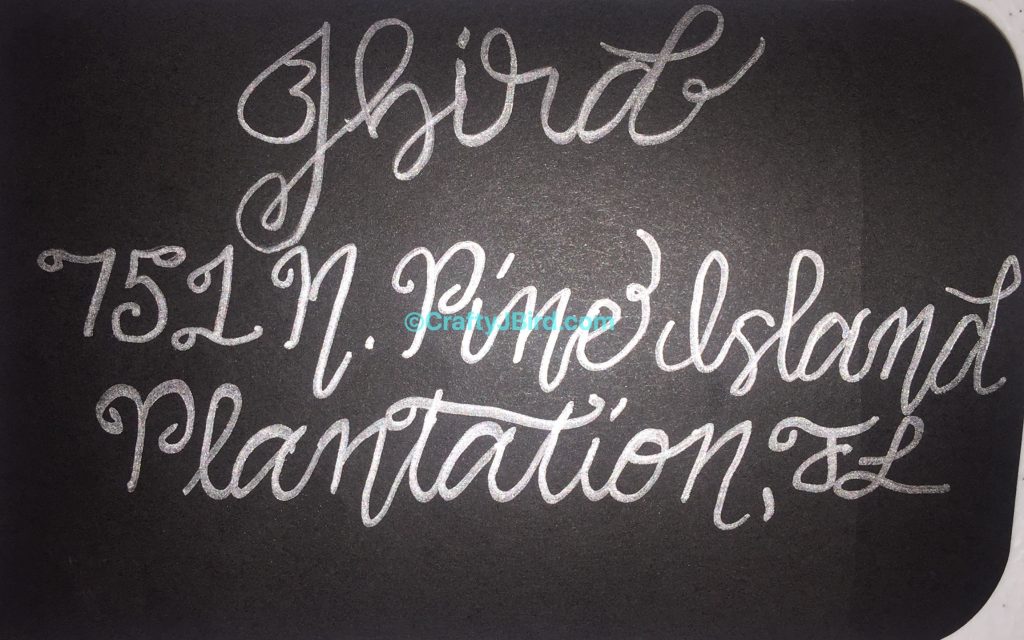 Jbird
751 N. Pine Island
©CraftyJBird.com
Plantation, FL